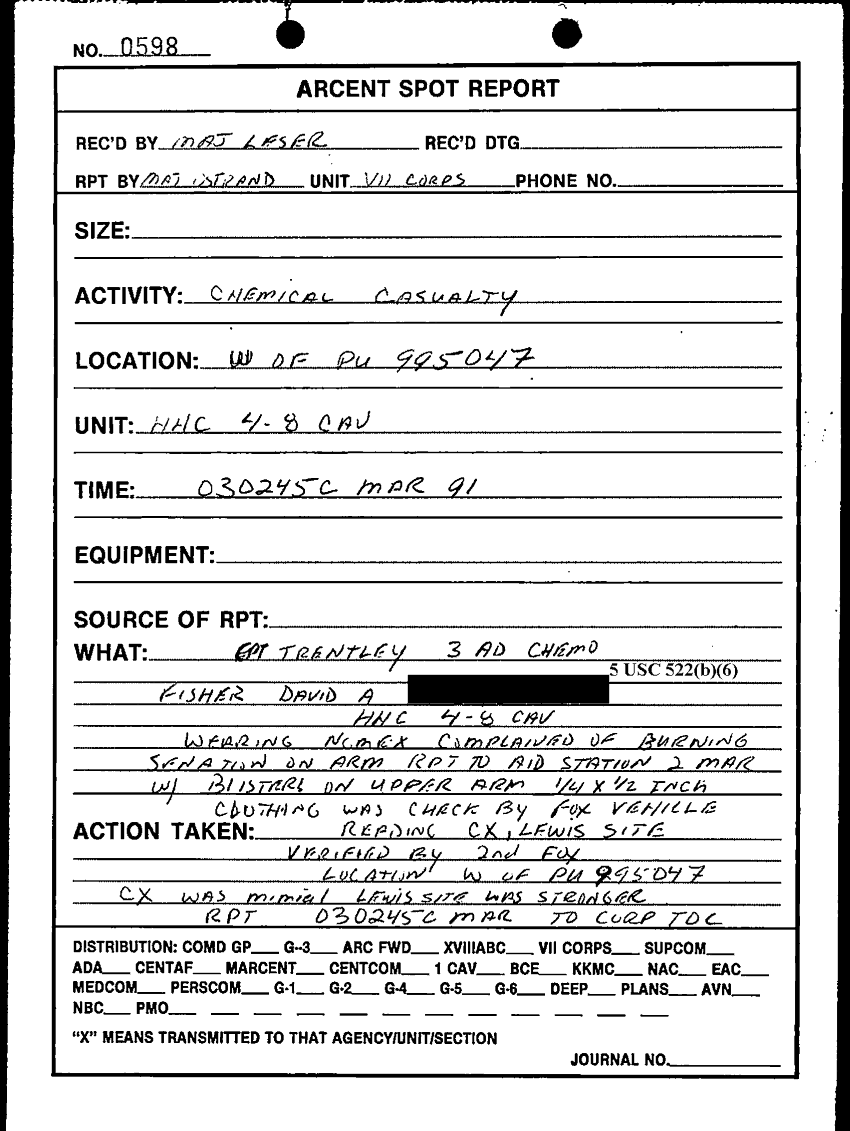 NO. 0598
ARCENT SPOT REPORT
REC'D BY MAJ LESER REC'D DTG
RPT BY MAJ ISTRAND UNIT VII CORPS PHONE NO.
SIZE:
ACTIVITY: CHEMICAL CASUALTY
LOCATION: W OF PU 995047
UNIT: HHC 4-8 CAV
TIME: 030245C MAR 91
EQUIPMENT:
SOURCE OF RPT:
WHAT: CPT TRENTLEY 3 AD CHEMO
5 USC 522(b)(6)
FISHER DAVID A
HHC 4-8 CAV
WEARING NOMEX COMPLAINED OF BURNING
SENATION ON ARM RPT TO AID STATION 2 MAR
W/ BLISTERS ON UPPER ARM 1/4 X 1/2 INCH
CLOTHING WAS CHECK BY FOX VEHILLE
ACTION TAKEN: READING CX, LEWIS SITE
VERIFIED BY 2nd FOX
LOCATION W OF PU 995047
CX WAS mimial LEWIS SITE WAS STRONGER
RPT 030245C MAR TO CORP TOC
DISTRIBUTION: COMD GP___ G-3___ ARC FWD___ XVIIIABC___ VII CORPS___ SUPCOM___
ADA___ CENTAF___ MARCENT___ CENTCOM___ 1 CAV___ BCE___ KKMC___ NAC___ EAC___
MEDCOM___ PERSCOM___ G-1___ G-2___ G-4___ G-5___ G-6___ DEEP___ PLANS___ AVN___
NBC___ PMO___
"X" MEANS TRANSMITTED TO THAT AGENCY/UNIT/SECTION
JOURNAL NO.